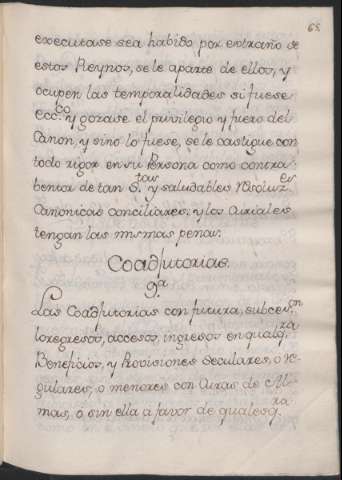 65
executase sea habido por extraño de
estos Reynos, se le aparte de ellos, y
ocupen las temporalidades si fuese
Ecc.co y gozase el privilegio y fuero del
Canon, y sino lo fuese, se le castigue con
todo rigor en su Persona como contra-
bentor de tan S.tas y saludables Resoluz.es
Canonicas conciliares; y los Curiales
tengan las mismas penas.
Coadjutorias.
9.a
Las Coadjutorias con futura, subces.on
los regresos, accesos, ingresos en qualq.ra
Beneficios, y Provisiones seculares, o re-
gulares, o menores con Curas de Al-
mas, o sin ella a favor de qualesq.ra